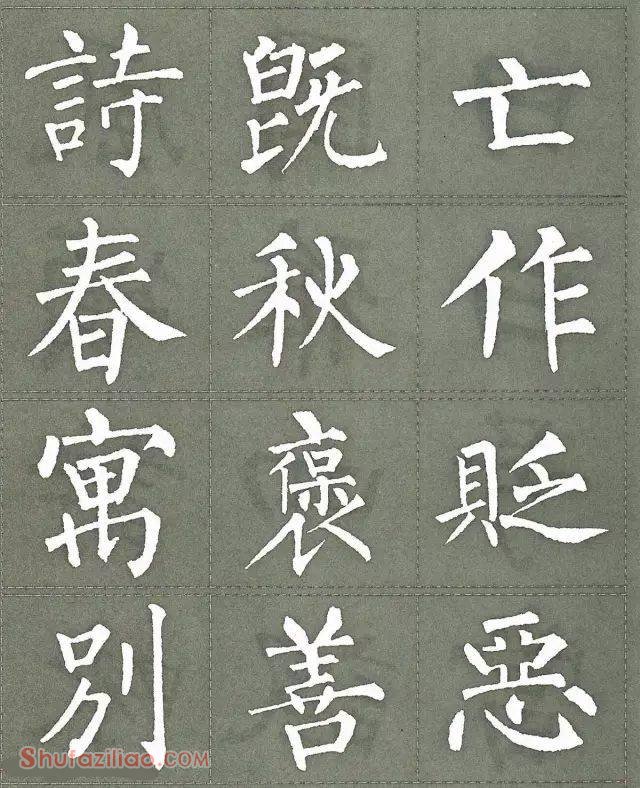 詩既亡
春秋作
寓褒貶
別善惡
Shufaziliao.com